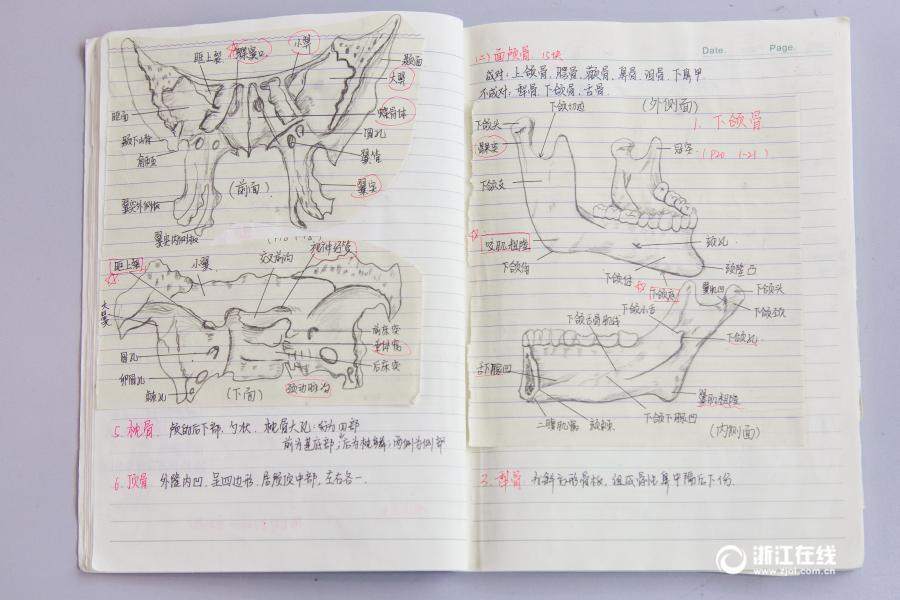 眶上裂
蝶窦口
小翼
颞面
大翼
眶面
蝶骨体
圆孔
颞下嵴
翼管
翼突
翼突外侧板
(前面)
翼突内侧板
眶上裂
小翼
交叉前沟
视神经管
大翼
前床突
垂体窝
圆孔
后床突
卵圆孔
棘孔
(下面)
颈动脉沟
5. 枕骨. 颅的后下部, 勺状, 枕骨大孔: 分为四部
前为基底部; 后为枕鳞; 两侧为侧部
6. 顶骨 外隆内凹, 呈四边形. 居颅顶中部, 左右各一.
Date.
Page.
(二) 面颅骨. 15块
成对: 上颌骨、腭骨、颧骨、鼻骨、泪骨、下鼻甲
不成对: 犁骨、下颌骨、舌骨
(外侧面)
1. 下颌骨
(P20 1-21)
下颌头
下颌切迹
冠突
髁突
下颌支
咬肌粗隆
颏孔
下颌角
颏隆凸
下颌体
下颌底
翼肌凹
下颌头
下颌颈
下颌小舌
下颌舌骨肌线
下颌孔
舌下腺凹
翼肌粗隆
二腹肌窝
颏棘
下颌下腺凹
(内侧面)
3. 犁骨 为斜方形骨板, 组成骨性鼻中隔后下份.
浙江在线
www.zjol.com.cn